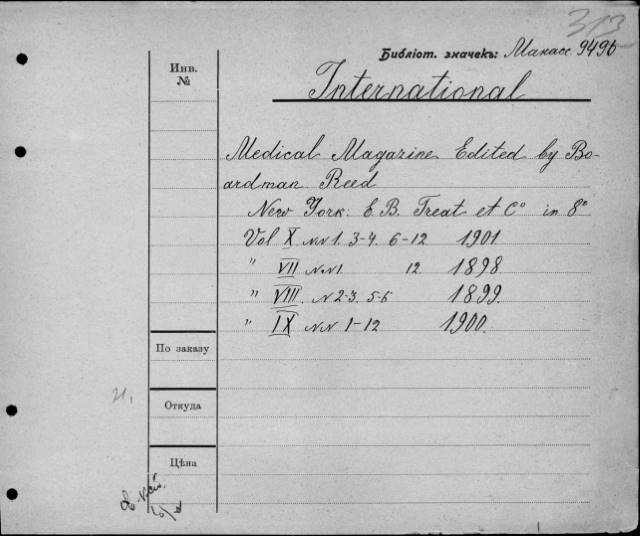 313
Библіот. значекъ: Манасс. 9490
Инв.
№
International
Medical Magazine Edited by Bo-
ardman Reed
New York: E. B. Treat et Cº in 8º
Vol X. NN 1. 3-4. 6-12 1901
" VII NN 1. 12. 1898
" VIII. N 2-3. 5-6 1899.
" IX NN 1-12 1900.
По заказу
Откуда
Цѣна